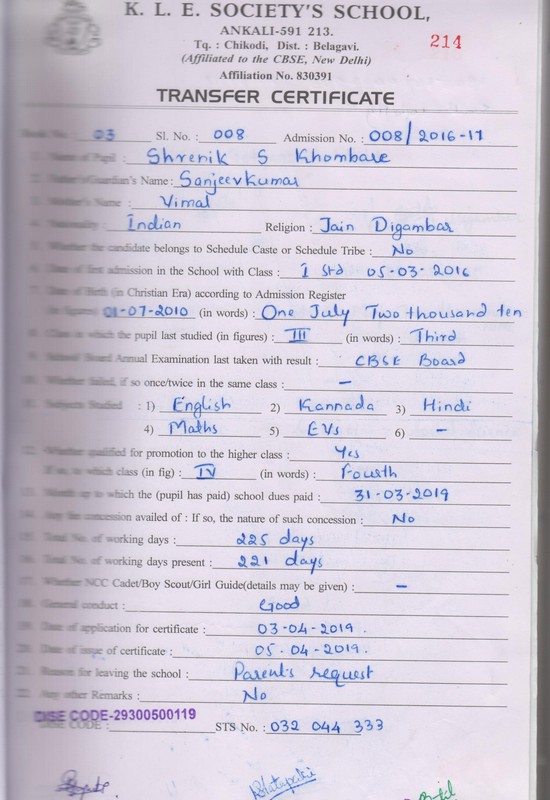 K. L. E. SOCIETY'S SCHOOL,
ANKALI-591 213.
Tq. : Chikodi, Dist. : Belagavi.
214
(Affiliated to the CBSE, New Delhi)
Affiliation No. 830391
TRANSFER CERTIFICATE
No. : 03 Sl. No. : 008 Admission No. : 008/2016-17
1. Name of Pupil : Shrenik S Khombare
2. Father's/Guardian's Name : Sanjeevkumar
3. Mother's Name : Vimal
4. Nationality : Indian Religion : Jain Digambar
5. Whether the candidate belongs to Schedule Caste or Schedule Tribe : No
6. Date of first admission in the School with Class : I Std 05-03-2016
7. Date of Birth (in Christian Era) according to Admission Register
(in figures) 01-07-2010 (in words) : One July Two thousand ten
8. Class in which the pupil last studied (in figures) : III (in words) : Third
9. School/Board Annual Examination last taken with result : CBSE Board
10. Whether failed, if so once/twice in the same class : –
11. Subjects Studied : 1) English 2) Kannada 3) Hindi
4) Maths 5) EVs 6) –
12. Whether qualified for promotion to the higher class : Yes
If so, to which class (in fig) : IV (in words) : Fourth
13. Month up to which the (pupil has paid) school dues paid : 31-03-2019
14. Any fee concession availed of : If so, the nature of such concession : No
15. Total No. of working days : 225 days
16. Total No. of working days present : 221 days
17. Whether NCC Cadet/Boy Scout/Girl Guide(details may be given) : –
18. General conduct : Good
19. Date of application for certificate : 03-04-2019.
20. Date of issue of certificate : 05-04-2019.
21. Reason for leaving the school : Parent's request
22. Any other Remarks : No
DISE CODE-29300500119
DISE CODE : STS No. : 032 044 333